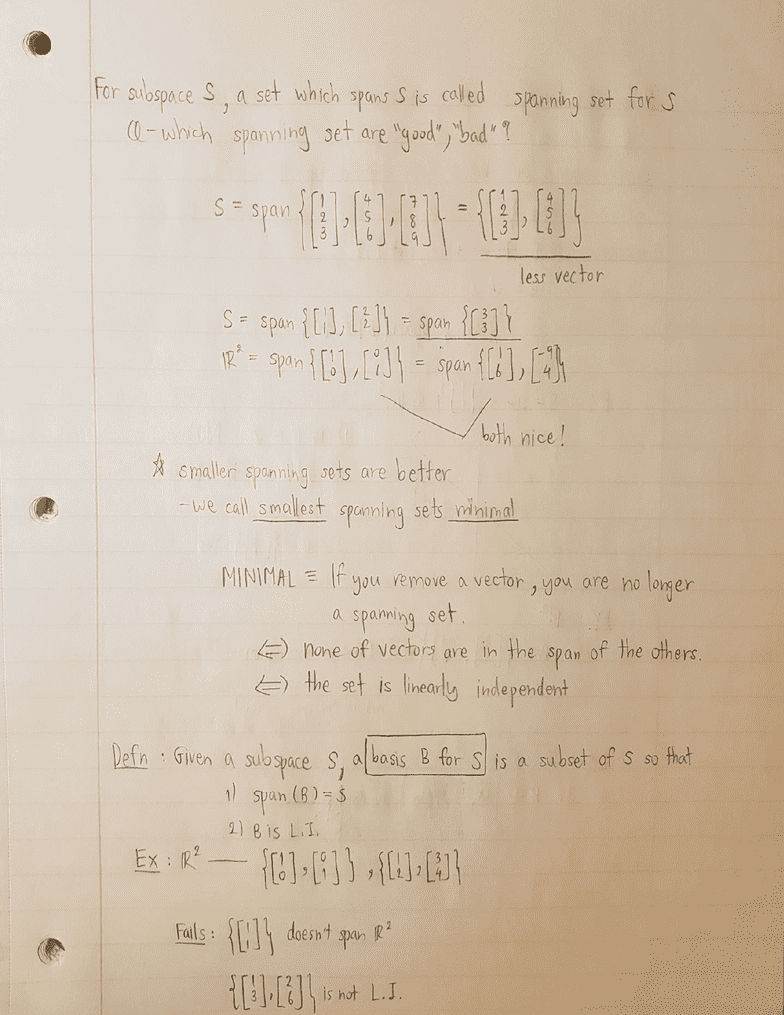 For subspace S, a set which spans S is called spanning set for S
Q - which spanning set are "good", "bad"?
S = span {[1 2 3], [4 5 6], [7 8 9]} = {[1 2 3], [4 5 6]}
less vector
S = span {[1 1], [2 2]} = span {[3 3]}
ℝ² = span {[1 0], [0 1]} = span {[1 6], [-9 4]}
both nice!
☆ smaller spanning sets are better
- we call smallest spanning sets minimal
MINIMAL ≡ If you remove a vector, you are no longer
a spanning set.
⇔ none of vectors are in the span of the others.
⇔ the set is linearly independent
Defn : Given a subspace S, a basis B for S is a subset of S so that
1) span (B) = S
2) B is L.I.
Ex : ℝ² — {[1 0], [0 1]}, {[1 2], [3 4]}
Fails : {[1 1]} doesn't span ℝ²
{[1 3], [2 6]} is not L.I.